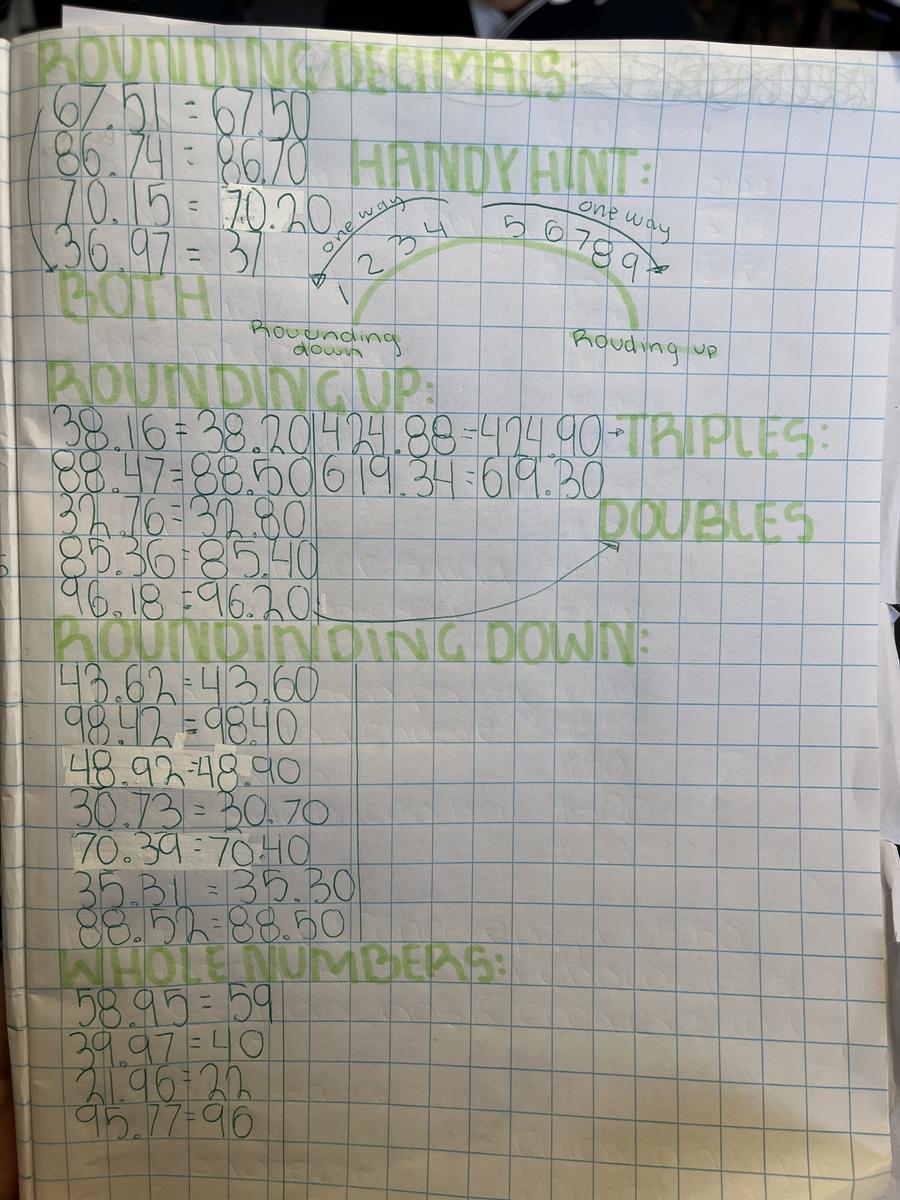 ROUNDING DECIMALS:
67.51 = 67.50
86.74 = 86.70
70.15 = 70.20
36.97 = 37
BOTH
HANDY HINT:
one way
one way
1 2 3 4 5 6 7 8 9
Rouunding down
Rouding up
ROUNDING UP:
38.16 = 38.20 424.88 = 424.90 → TRIPLES:
88.47 = 88.50 619.34 = 619.30
32.76 = 32.80
DOUBLES
85.36 = 85.40
96.18 = 96.20
ROUNDINDING DOWN:
43.62 = 43.60
98.42 = 98.40
48.92 = 48.90
30.73 = 30.70
70.39 = 70.40
35.31 = 35.30
88.52 = 88.50
WHOLE NUMBERS:
58.95 = 59
39.97 = 40
21.96 = 22
95.77 = 96